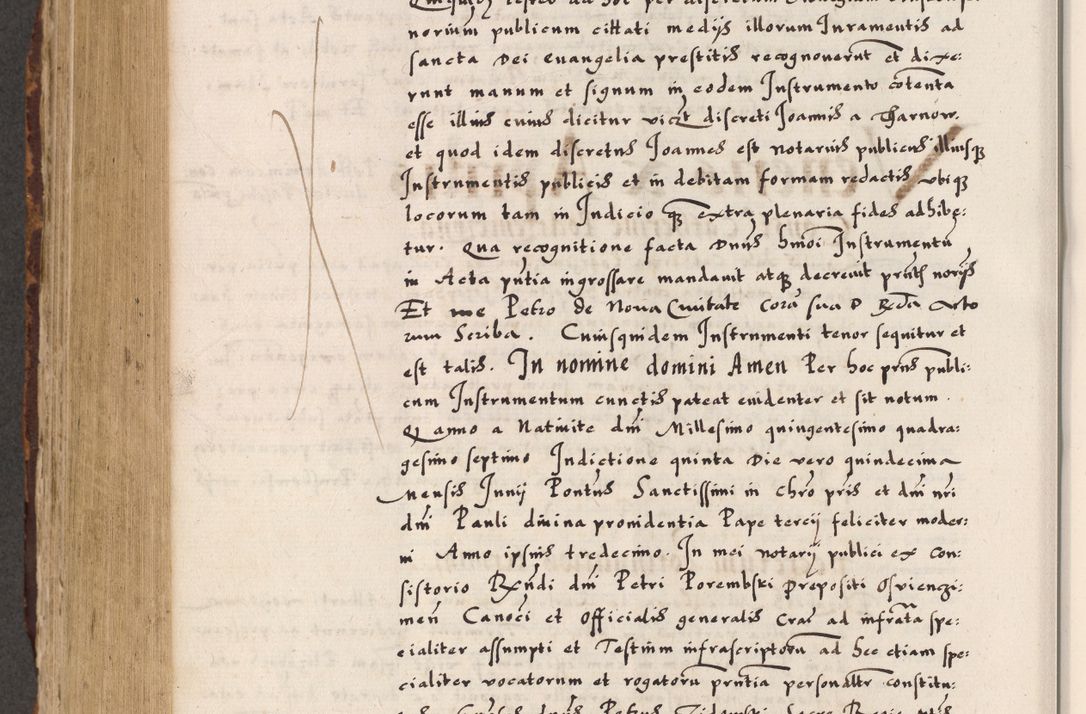 norium publicum citati medijs illorum Iuramentis ad
sancta Dei euangelia prestitis recognouerunt et dixe:
runt manum et signum in eodem Instrumento cotenta
esse illius cuius dicitur vizt discreti Ioannis a Tharnow.
et quod idem discretus Ioannes est notarius publicus illiusq
Instrumentis publicis et in debitam formam redactis vbiq
locorum tam in Iudicio q extra plenaria fides adhibe:
tur. Qua recognitione facta Dnus hmoi Instrumentu
in Acta pntia ingrossare mandauit atq decreuit pntib norijs
Et me Petro de Noua Ciuitate Cora sua D Rda Acto
rum Scriba. Cuiusquidem Instrumenti tenor sequitur et
est talis. In nomine domini Amen Per hoc pns publi:
cum Instrumentum cunctis pateat euidenter et sit notum.
Q anno a Natiuite dni Millesimo quingentesimo quadra:
gesimo septimo Indictione quinta Die vero quindecima
Mensis Iunij Pontus Sanctissimi in chro pris et dni nri
dni Pauli diuina prouidentia Pape tercij feliciter moder:
ni Anno ipsius tredecimo. In mei notarij publici ex Con:
sistorio Rxndi dni Petri Porembski prepositi Osvienzi:
men Canoci et Officialis generalis Crac ad infrata spe:
cialiter assumpti et Testium infrascriptoru ad hec etiam spe:
cialiter vocatorum et rogatoru pntia personalitr constitu: